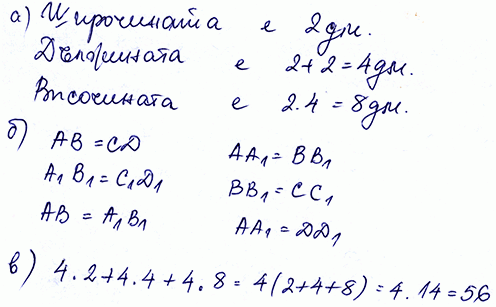 а) Широчината е 2 дм.
Дължината е 2+2=4 дм.
Височината е 2.4=8 дм.
б) AB = CD AA₁ = BB₁
A₁B₁ = C₁D₁ BB₁ = CC₁
AB = A₁B₁ AA₁ = DD₁
в) 4.2+4.4+4.8 = 4(2+4+8) = 4.14 = 56